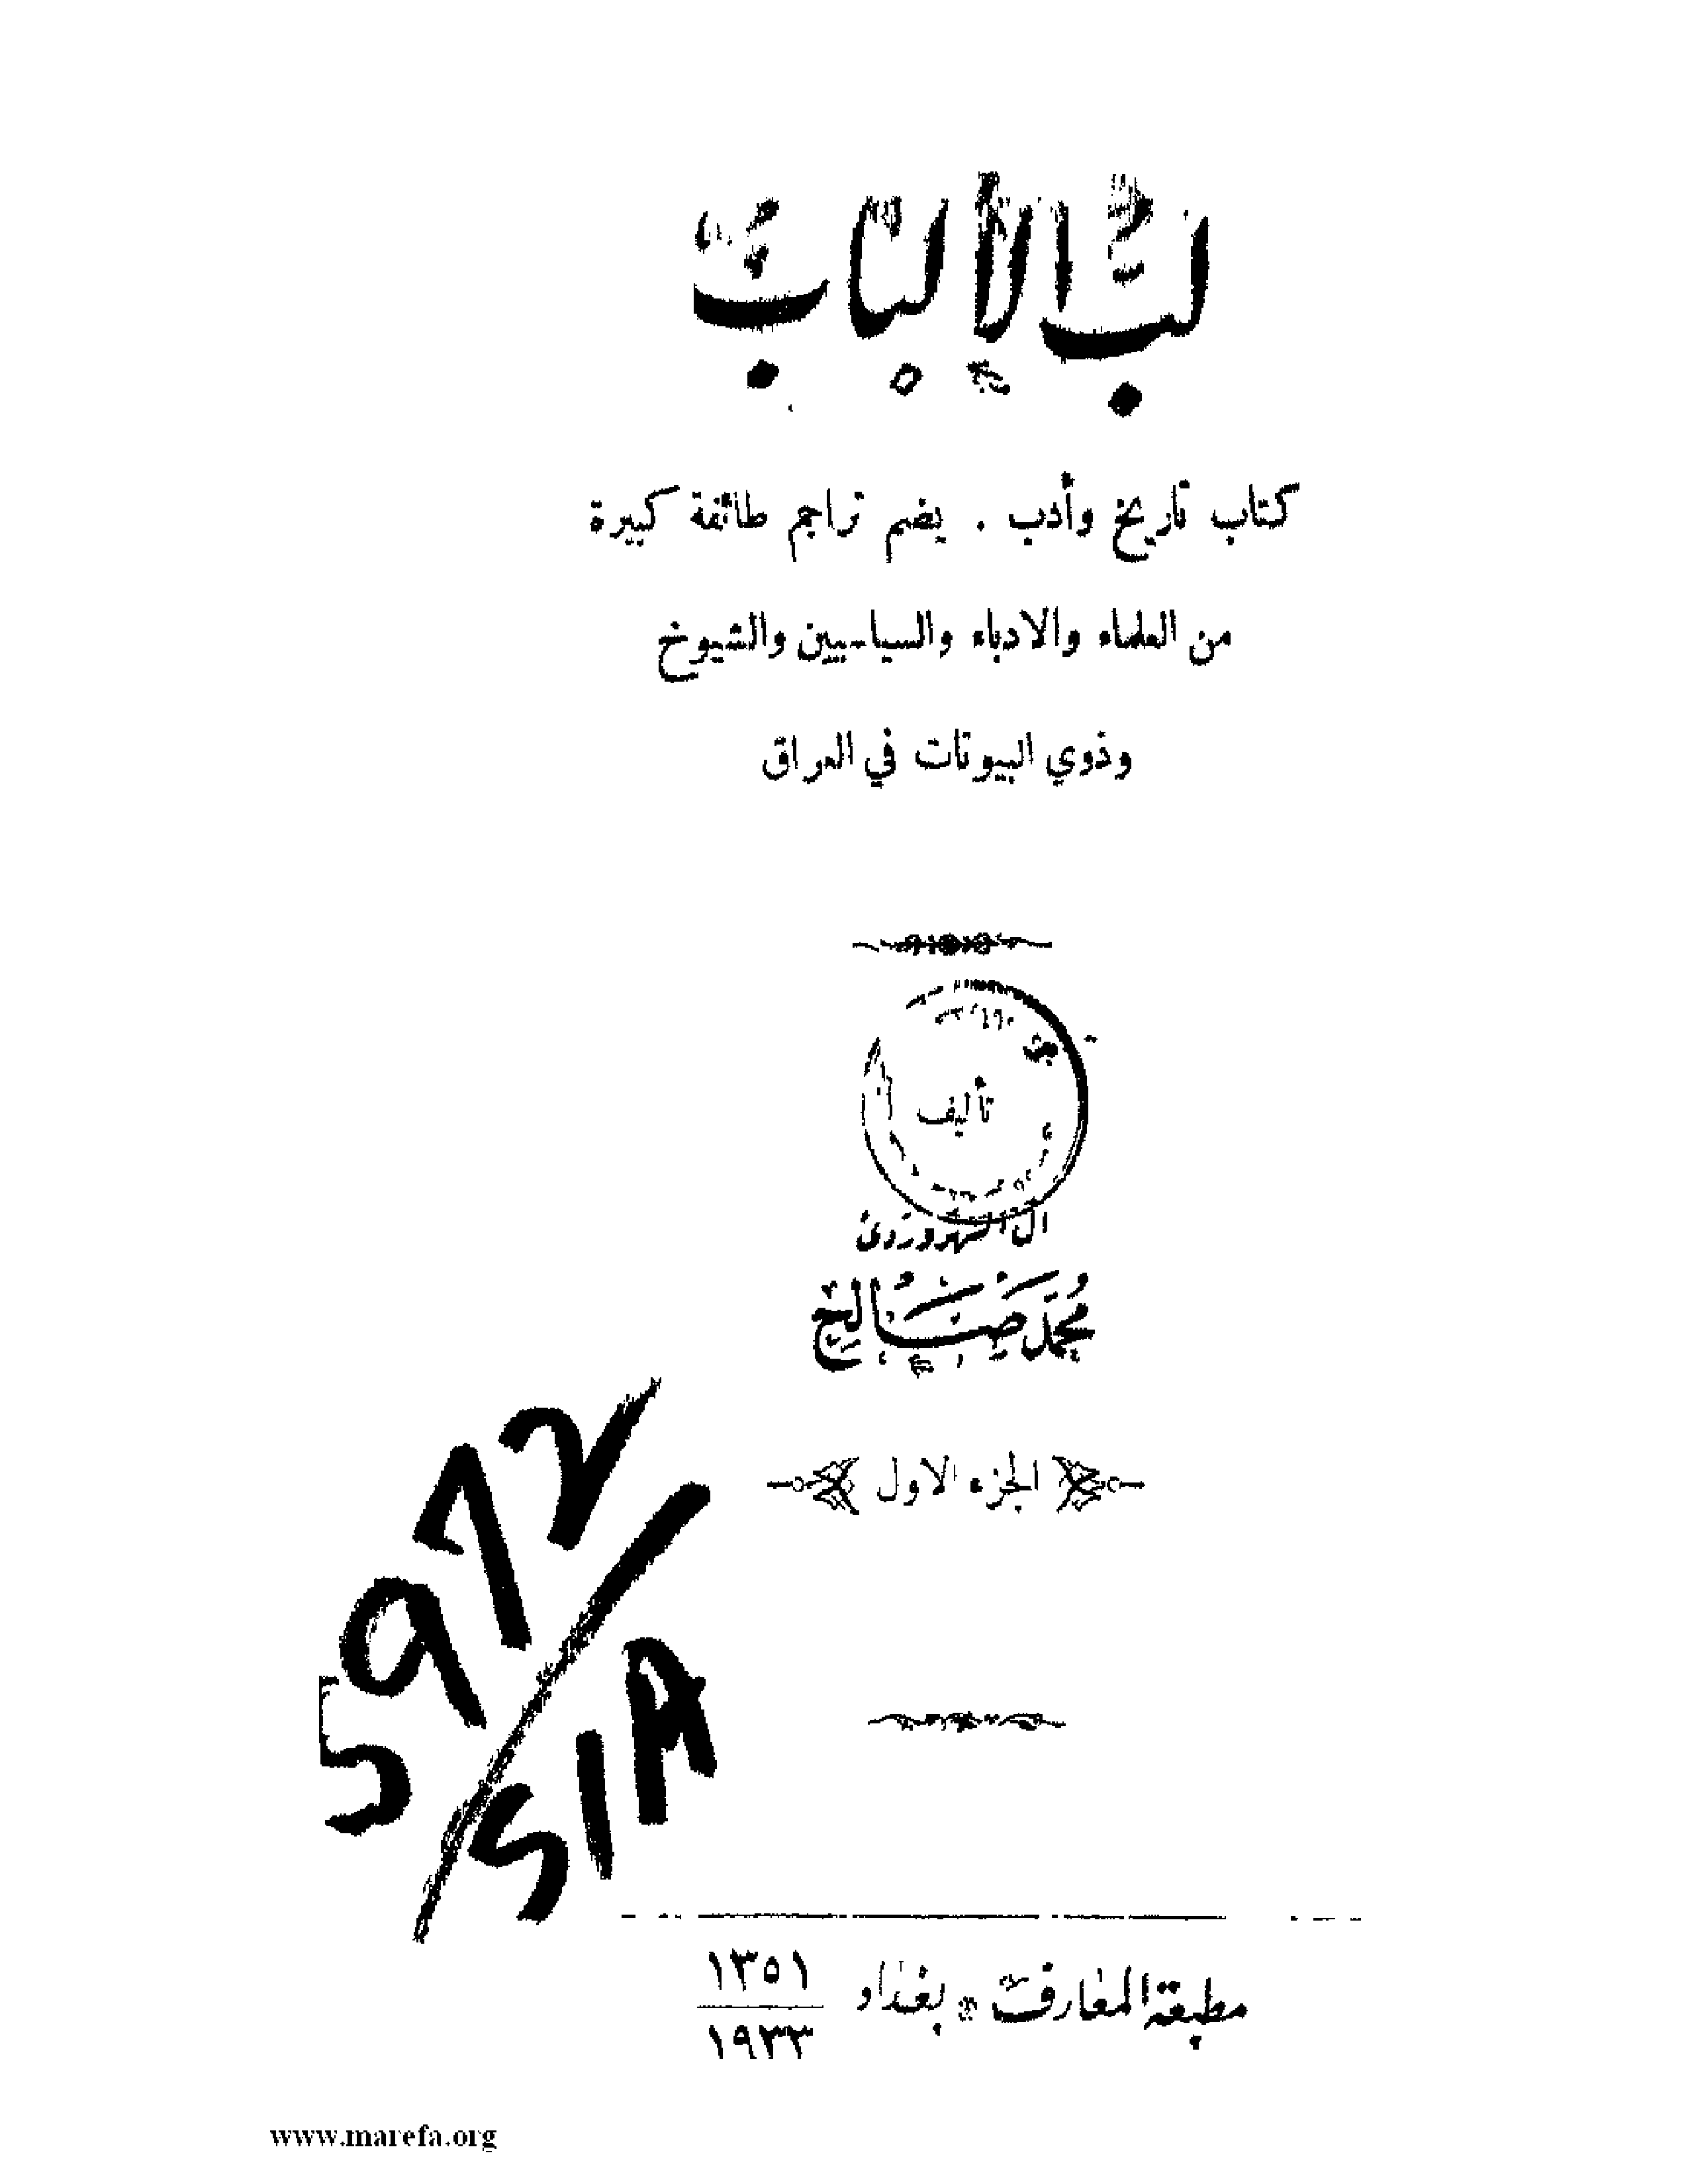 لب الألباب
كتاب تاريخ وأدب . يضم تراجم طائفة كبيرة
من العلماء والادباء والسياسيين والشيوخ
وذوي البيوتات في العراق
تأليف
آل السهروردي
محمد صالح
الجزء الاول
5972
SIA
مطبعة المعارف * بغداد
١٣٥١
١٩٣٣
www.marefa.org